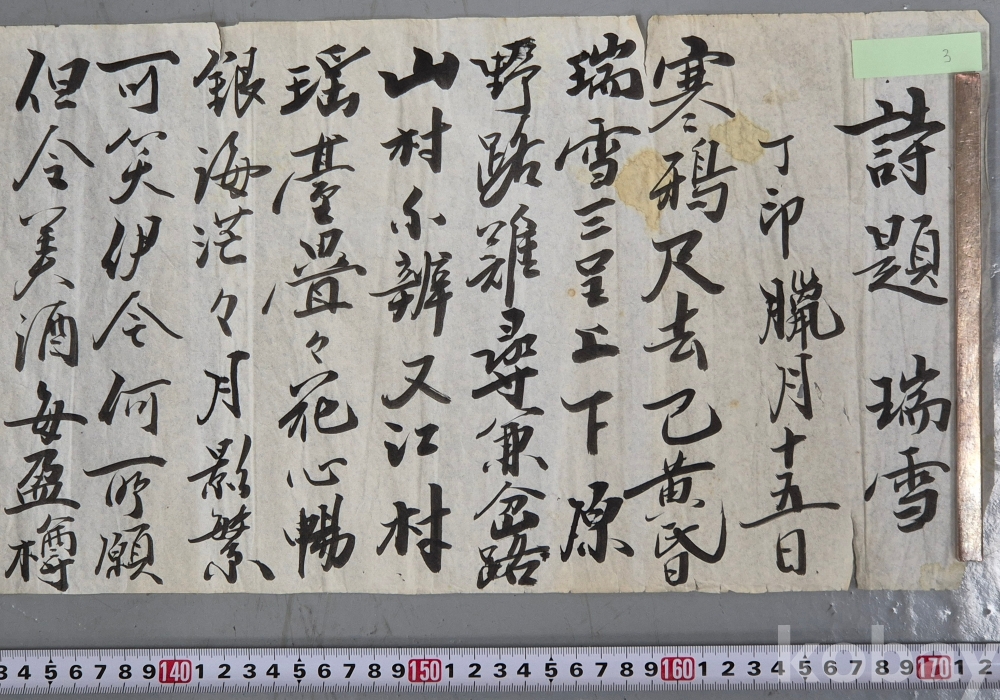 3
詩題 瑞雪
丁卯臘月十五日
寒鴉尺去已黃昏
瑞雪三呈上下原
野路難尋兼岔路
山村不辨又江村
瑶臺疊々花心暢
銀海茫々月影繁
可笑伊今何所願
但令美酒每盈樽
3 4 5 6 7 8 9 140 1 2 3 4 5 6 7 8 9 150 1 2 3 4 5 6 7 8 9 160 1 2 3 4 5 6 7 8 9 170 1 2
kobay